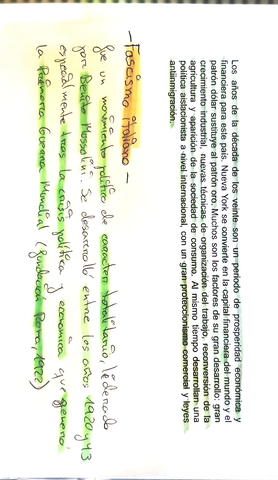 Los años de la década de los veinte son un período de prosperidad económica y
financiera para este país. Nueva York se convierte en la capital financiera del mundo y el
patrón dólar sustituye al patrón oro. Muchos son los factores de su gran desarrollo: gran
crecimiento industrial, nuevas técnicas de organización del trabajo, reconversión de la
agricultura y aparición de la sociedad de consumo. Al mismo tiempo desarrollan una
política aislacionista a nivel internacional, con un gran proteccionismo comercial y leyes
antiinmigración.
- Fascismo italiano -
fue un movimiento político de caracter totalitario, liderado
por Benito Mussolini. Se desarrolló entre los años 1920 y 43
especialmente tras la crisis política y económica que generó
la Primera Guerra Mundial ( Roma, 1922)